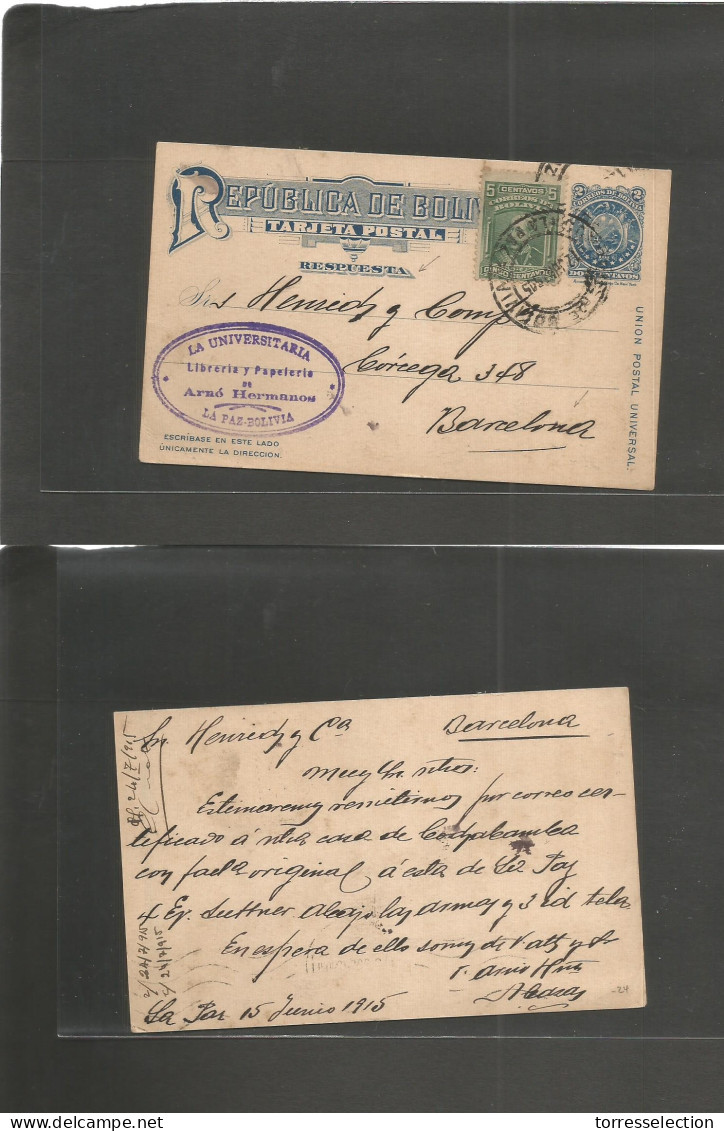 REPÚBLICA DE BOLIV
TARJETA POSTAL
RESPUESTA
5 CENTAVOS 5
CORREOS DE
BOLIVIA
2 2
CORREOS DE BOLIVIA
DOS CENTAVOS
Srs Henrich y Comp
Córcega 348
Barcelona
LA UNIVERSITARIA
Libreria y Papeleria
DE
Arnó Hermanos
LA PAZ-BOLIVIA
ESCRÍBASE EN ESTE LADO
ÚNICAMENTE LA DIRECCION.
UNION POSTAL UNIVERSAL.
Sr. Henrich y Cª Barcelona
Muy Sr. ntros:
Estimaremos remitirnos por correo cer-
tificado á ntra casa de Cochabamba
con facta original á esta de La Paz
4 Ej. Suttner Abajo las armas y 3 id tela
En espera de ello somos de V atts y Ss
La Paz 15 Junio 1915
24/7/915
24/7/915
-24
torresselection